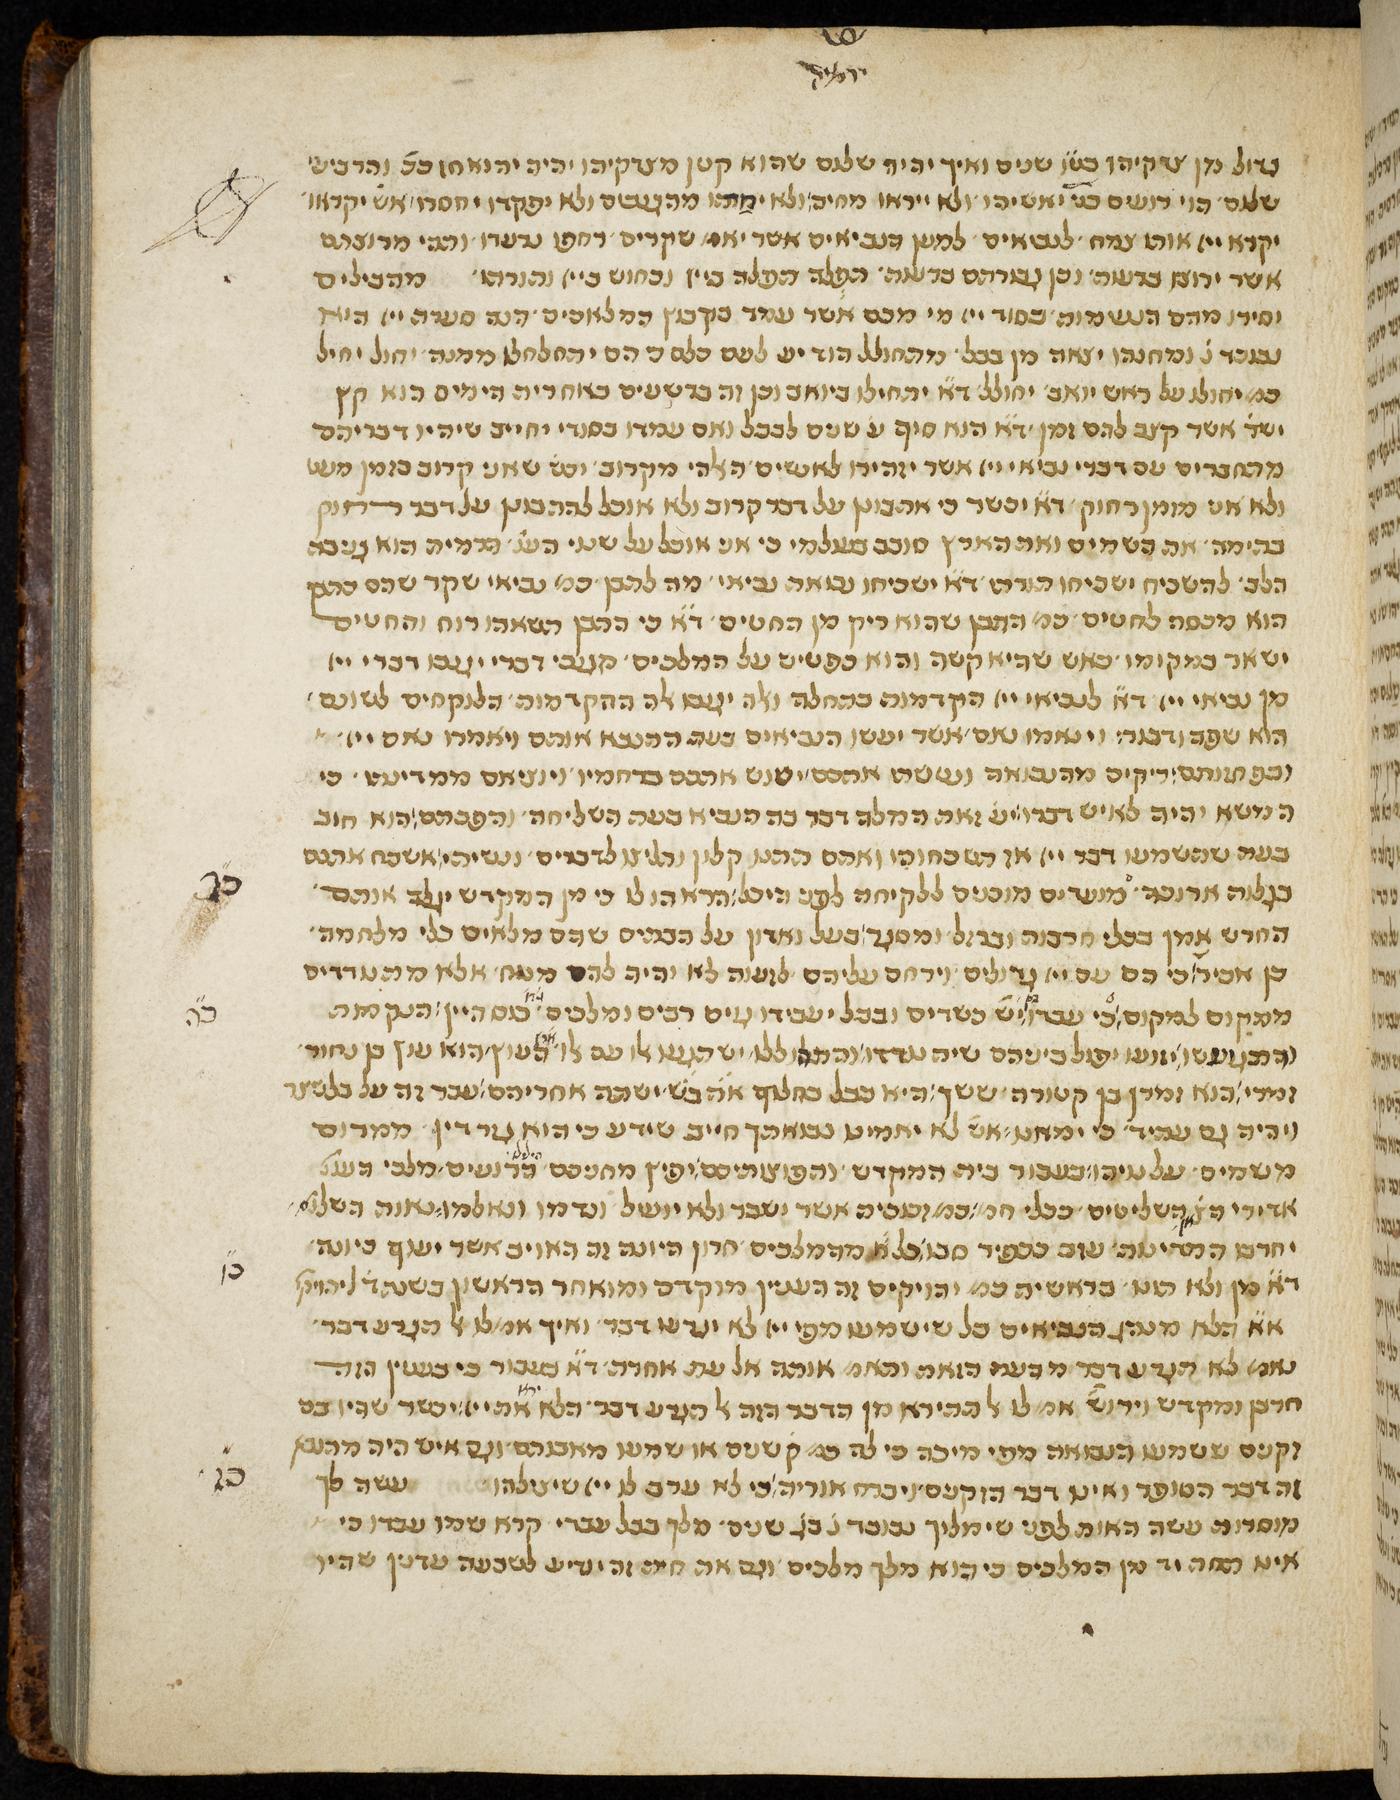 ירמיה
גדול מן צדקיהו בש״ו שנים ואיך יהיה שלום שהוא קטן מצדקיהו יהיה יהואחז כפ׳ והרביעי
שלום הוי רועים בני יאשיהו ולא ייראו מחיה ולא יחתו מהנעשים ולא יפקדו יחסרו אש׳ יקראו
יקרא ייי אותו צמח לנביאים למען הנביאים אשר יאמ׳ שקרים רחפו נרעדו ותהי מרוצתם
אשר ירוצו ברעה וכן גבורתם ברעה אפלה אפלה כייי וכחוש כייי והורתו מהבילים
יסירו מהם הנשמות בסוד ייי מי מכם אשר עמד בקבוץ המלאכים הנה סערת ייי היא
נבוכד נ׳ ומחנהו יצאה מן בבל מתחולל הודיע לעם כלם כ׳ הם יתחלחלו ממנה יחול יחיל
כמ׳ יחולו על ראש יואב יחולל ד״א יתחילו ביואב וכן זה ברשעים באחרית הימים הוא קץ
יש׳ר אשר קצב להם זמן ד״א הוא סוף ע׳ שנים לבבל ואם עמדו בסודי יחייב שיהיו דבריהם
מתחברים עם דברי נביאי ייי אשר יזהירו לאנשים האלהי מקרוב יכש׳ שאני קרוב בזמן מעט
ולא אני מזמן רחוק ד״א יכשר כי אתבונן על דבר קרוב ולא אוכל להתבונן על דבר רחוק
בהימה את השמים ואת הארץ סובב בעולמי כי אני אוכל על שני הענ׳ תרמית הוא גניבת
הלב להשכיח ישכיחו תורתו ד״א ישכיחו נבואת נביאי מה לתבן כמ׳ נביאי שקר שהם כתבן
הוא מכסה לחטים כמ׳ התבן שהוא ריק מן החטים ד״א כי התבן תשאהו רוח והחטים
ישאר במקומו כאש שהיא קשה והוא כפטיש על המלכים מגנבי דברי יגנבו דברי ייי
מן נביאי ייי ד״א לנביאי ייי הקדמות בתחלה ואלה יגנבו אלה ההקדמות הלוקחים לשונם
הוא שפה ודבור וינאמו נאם אשר יעשו הנביאים בעת התנבא אותם ויאמרו נאם ייי
ובפחזותם ריקים מהנבואה ונשיתי אתכם יטוש אתכם ברחמיו וינציאם ממדינתו כי
המשא יהיה לאיש דברו יע׳ זאת המלה דבר בה הנביא בעת השליחה והפכתם הוא חיוב
בעת שהשמעו דבר ייי אז תשכחוהו ואתם תתנו קלון ותליצו לדברים ונשיתי אשכח אתכם
בגלות ארוכה מועדים מוכנים ללקיחה לפני היכל הראהו לו כי מן המקדש יגלה אותם
החרש אמן בכלי חרבות וברזל ומסגר בעל וארון על הבתים שהם מלאים כלי מלחמה
כן אכיר כי הם עם ייי גדולים וירחם עליהם לזעוה לא יהיה להם מנוח אלא מתנודדים
ממקום למקום כי עברו יש׳ כשדים ובבל יעבידו גוים רבים ומלכים כוס היין הנקמות
והתגועשו יזועו יפול ביניהם שיתנודדו והתהוללו ישתגעו לו עם לו העוץ הוא עוץ בן נחור
זמרי הוא זמרן בן קטורה ששך היא בבל בחלוף את בש׳ ישתה אחריהם עבר זה על בלטשצר
ויהיה גם עתיד כי ימאנו אש׳ לא יאמינו נבואתך חייב שידע כי הוא גזר דין ממרום
משמים על נויהו בעבור בית המקדש והפוצותיכם יפיץ מחניכם הרועים מלכי העמ׳
אדירי הצ׳ השליטים ככלי חמ׳ כמ׳ זכוכית אשר נשבר ולא יועיל ונדמו ונאלמו נאות השלום
יחרבו המדינות עזב ככפיר סכו כל א׳ מהמלכים חרון היונה זה האויב אשר יעוף כיונה
ד״א מן ולא תונו בראשית כמ׳ יהויקים זה הענין מוקדם ומאוחר הראשון בשנת ד׳ ליהויק׳
א״א הלא מנהג הנביאים כל שישמעו מפי ייי לא יגרעו דבר ואיך אמ׳ לו אל תגרע דבר
אמ׳ לא תגרע דבר מהעת הזאת ותאמ׳ אותה אל עת אחרת ד״א בעבור כי בענין הזה
חרבן ומקדש וירוש׳ אמ׳ לו אל תתירא מן הדבר הזה אל תגרע דבר הלא את ייי יכשר שהיו בם
זקנים ששמעו הנבואה מפי מיכה כי לה כמ׳ ק׳ שנים או שמעו מאבותם וגם איש היה מתנבא
זה דבר הסופר ואינו דבר הזקנים ויברח אוריה כי לא ערב לו ייי שיצילהו עשה לך
מוסרות עשה האות לפני שימליך נבוכד נ׳ בן שנים מלך בבל עבדי קרא שמו עבדו כי
אינו תחת יד מן המלכים כי הוא מלך מלכים וגם את חית זה יודיע לשבעה עדנין שהיו
כד
כה
כו
כז